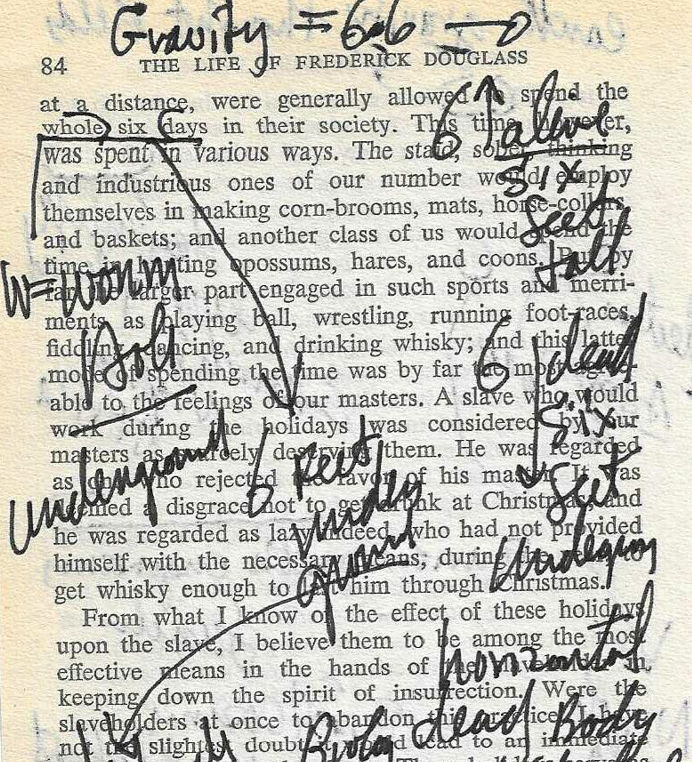 Gravity = 6.6
84 THE LIFE OF FREDERICK DOUGLASS
at a distance, were generally allowed spend the
whole six days in their society. This time,
was spent in various ways. The thinking
and industrious ones of our number would employ
themselves in making corn-brooms, mats,
and baskets; and another class of us would the
time in opossums, hares, and coons. by
larger part engaged in such sports and merri-
ments as playing ball, wrestling, running foot-races,
fiddling, dancing, and drinking whisky; and this latter
mode of spending the time was by far the
able to the feelings of our masters. A slave who would
work during the holidays was considered by our
masters as deserving them. He was regarded
as who rejected favor of his It was
a disgrace not to get at and
he was regarded as lazy indeed, who had not provided
himself with the necessary during
get whisky enough to him through Christmas.
From what I know of the effect of these holidays
upon the slave, I believe them to be among the most
effective means in the hands of
keeping down the spirit of insurrection. Were the
slaveholders at once to abandon this
not the slightest doubt to an immediate
6 alive
six
feet
tall
W=worm
underground
6 feet
under
ground
6 dead
six
feet
horizontal
dead Body